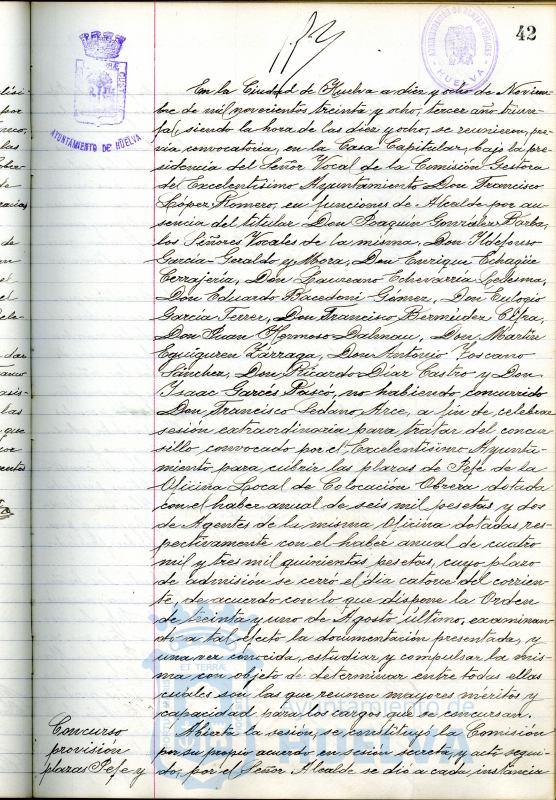 42
AYUNTAMIENTO DE HUELVA
HUELVA
En la Ciudad de Huelva a diez y ocho de Noviem-
bre de mil novecientos treinta y ocho, tercer año triun-
fal, siendo la hora de las diez y ocho, se reunieron, pre-
via convocatoria, en la Casa Capitular, bajo la pre-
sidencia del Señor Vocal de la Comisión Gestora
del Excelentísimo Ayuntamiento Don Francisco
López Romero, en funciones de Alcalde por au-
sencia del titular Don Joaquín González Barba,
los Señores Vocales de la misma, Don Ildefonso
García Geraldo y Mora, Don Enrique Echagüe
Cerrajería, Don Laureano Echevarría Ledesma,
Don Eduardo Bacedoni Gómez, Don Eulogio
García Ferrer, Don Francisco Bermúdez
Don Juan Hermoso Dalmau, Don Martín
Eguiguren Zárraga, Don Antonio Toscano
Sánchez, Don Ricardo Díaz Castro y Don
Isaac Garcés Pascó, no habiendo concurrido
Don Francisco Sedano Arce, a fin de celebrar
sesión extraordinaria para tratar del concur-
sillo convocado por el Excelentísimo Ayunta-
miento para cubrir las plazas de Jefe de la
Oficina Local de Colocación Obrera dotada
con el haber anual de seis mil pesetas y dos
de Agentes de la misma Oficina dotadas res-
pectivamente con el haber anual de cuatro
mil y tres mil quinientas pesetas, cuyo plazo
de admisión se cerró el día catorce del corrien-
te, de acuerdo con lo que dispone la Orden
de treinta y uno de Agosto último, examinan-
do a tal efecto la documentación presentada, y
una vez conocida, estudiar y compulsar la mis-
ma con objeto de determinar entre todas ellas
cuales son las que reunen mayores méritos y
capacidad para los cargos que se concursan.
Concurso
provisión
plazas Jefe y
Abierta la sesión, se constituyó la Comisión
por su propio acuerdo en sesión secreta, y acto segui-
do, por el Señor Alcalde se dió a cada instancia
ET TERRA
Ayuntamiento de
HUELVA